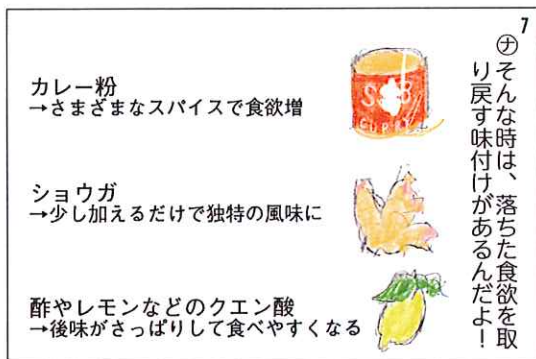 7
㋤そんな時は、落ちた食欲を取
り戻す味付けがあるんだよ！
カレー粉
→さまざまなスパイスで食欲増
ショウガ
→少し加えるだけで独特の風味に
酢やレモンなどのクエン酸
→後味がさっぱりして食べやすくなる
S&B
CURRY